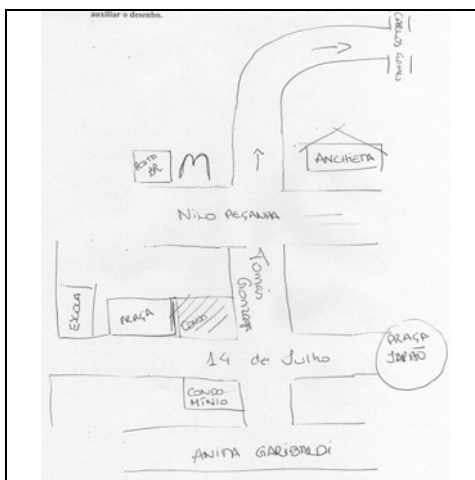 auxiliar o desenho.
CARLOS GOMES
POSTO
BR
ANCHIETA
NILO PEÇANHA
TOMAS
GONZAGA
ESCOLA
PRAÇA
CONDO
14 de Julho
PRAÇA
JAPÃO
CONDO-
MÍNIO
ANITA GARIBALDI